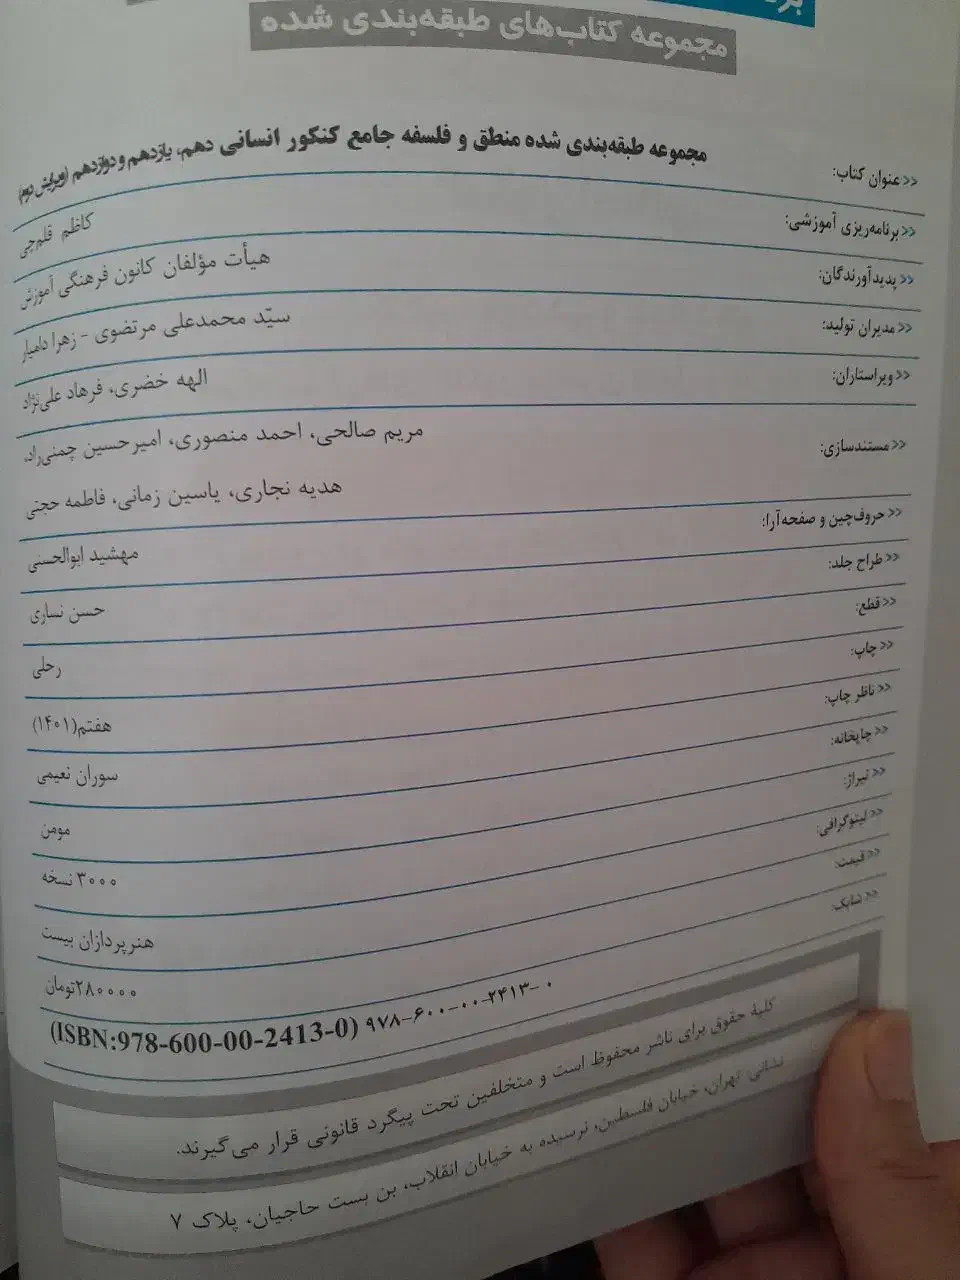 مجموعه کتاب‌های طبقه‌بندی شده
<<عنوان کتاب: مجموعه طبقه‌بندی شده منطق و فلسفه جامع کنکور انسانی دهم، یازدهم و دوازدهم (ویرایش دوم)
<<برنامه‌ریزی آموزشی: کاظم قلم‌چی
<<پدیدآورندگان: هیأت مؤلفان کانون فرهنگی آموزش
<<مدیران تولید: سیّد محمدعلی مرتضوی - زهرا دامیار
<<ویراستاران: الهه خضری، فرهاد علی‌نژاد
<<مستندسازی: مریم صالحی، احمد منصوری، امیرحسین چمنی‌راد،
هدیه نجاری، یاسین زمانی، فاطمه حجتی
<<حروف‌چین و صفحه‌آرا: مهشید ابوالحسنی
<<طراح جلد: حسن نساری
<<قطع: رحلی
<<چاپ: هفتم(۱۴۰۱)
<<ناظر چاپ: سوران نعیمی
<<چاپخانه: مومن
<<تیراژ: ۳۰۰۰ نسخه
<<لیتوگرافی: هنرپردازان بیست
<<قیمت: ۲۸۰۰۰۰تومان
<<شابک: ۹۷۸-۶۰۰-۰۰-۲۴۱۳-۰ (ISBN:978-600-00-2413-0)
کلیه حقوق برای ناشر محفوظ است و متخلفین تحت پیگرد قانونی قرار می‌گیرند.
نشانی: تهران، خیابان فلسطین، نرسیده به خیابان انقلاب، بن بست حاجیان، پلاک ۷